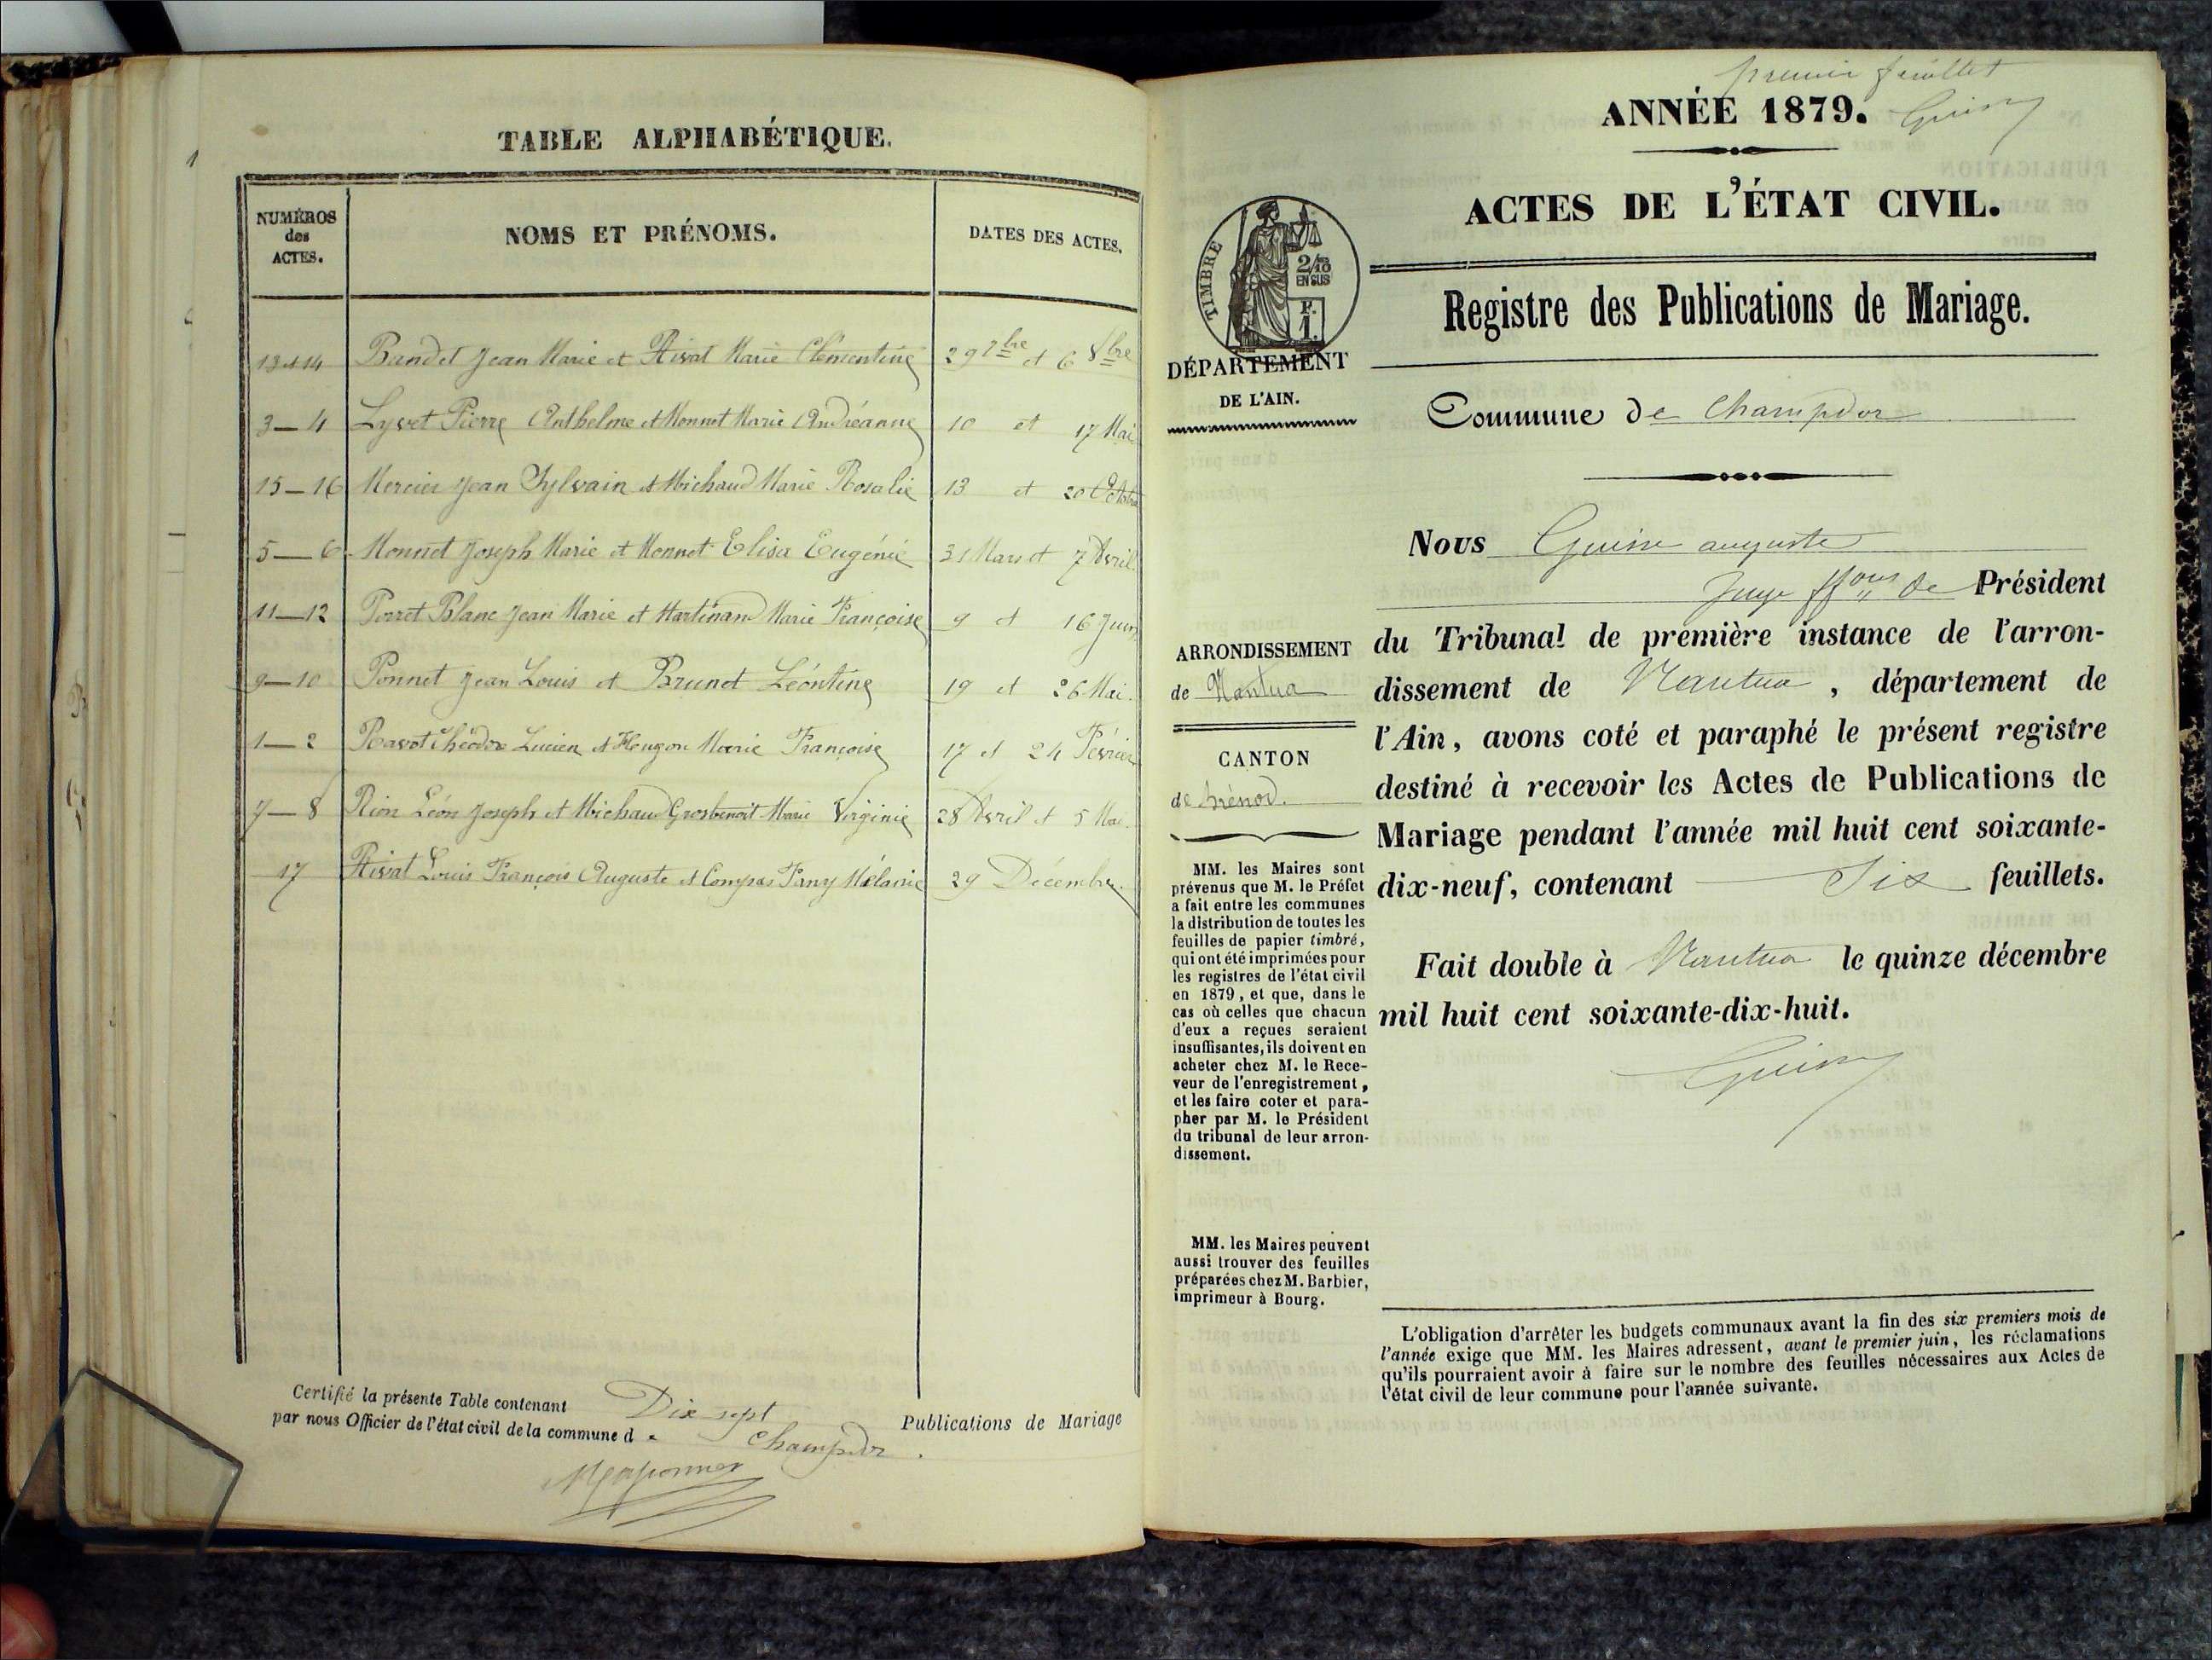 TABLE ALPHABÉTIQUE.
NUMÉROS
des
ACTES.
NOMS ET PRÉNOMS.
DATES DES ACTES.
13 et 14 Jean Marie et Rivat Marie Clémentine 29 7bre et 6 8bre
3—4 Lyvet Pierre Anthelme et Monnet Marie Andréanne 10 et 17 Mai
15—16 Mercier Jean Sylvain et Michaud Marie Rosalie 13 et 20 Octobre
5—6 Monnet Joseph Marie et Monnet Elisa Eugénie 31 Mars et 7 Avril.
11—12 Porret Blanc Jean Marie et Martinand Marie Françoise 9 et 16 Juin
9—10 Ponnet Jean Louis et Brunet Léontine 19 et 26 Mai.
1—2 Ravot Théodore Lucien et Hugon Marie Françoise 17 et 24 Février
7—8 Rion Léon Joseph et Michaud Grosbenoit Marie Virginie 28 Avril et 5 Mai.
17 Rivat Louis François Auguste et Compas Fany Mélanie 29 Décembre.
Certifié la présente Table contenant Dix sept Publications de Mariage
par nous Officier de l'état civil de la commune de Champdor.
premier feuillet
ANNÉE 1879.
ACTES DE L'ÉTAT CIVIL.
Registre des Publications de Mariage.
TIMBRE
2/10
EN SUS
F.
1.
DÉPARTEMENT
DE L'AIN.
Commune de Champdor
ARRONDISSEMENT
de Nantua
CANTON
de Brénod.
MM. les Maires sont
prévenus que M. le Préfet
a fait entre les communes
la distribution de toutes les
feuilles de papier timbré,
qui ont été imprimées pour
les registres de l'état civil
en 1879, et que, dans le
cas où celles que chacun
d'eux a reçues seraient
insuffisantes, ils doivent en
acheter chez M. le Rece-
veur de l'enregistrement,
et les faire coter et para-
pher par M. le Président
du tribunal de leur arron-
dissement.
MM. les Maires peuvent
aussi trouver des feuilles
préparées chez M. Barbier,
imprimeur à Bourg.
Nous auguste
Juge ffons de Président
du Tribunal de première instance de l'arron-
dissement de Nantua, département de
l'Ain, avons coté et paraphé le présent registre
destiné à recevoir les Actes de Publications de
Mariage pendant l'année mil huit cent soixante-
dix-neuf, contenant Six feuillets.
Fait double à Nantua le quinze décembre
mil huit cent soixante-dix-huit.
L'obligation d'arrêter les budgets communaux avant la fin des six premiers mois de
l'année exige que MM. les Maires adressent, avant le premier juin, les réclamations
qu'ils pourraient avoir à faire sur le nombre des feuilles nécessaires aux Actes de
l'état civil de leur commune pour l'année suivante.